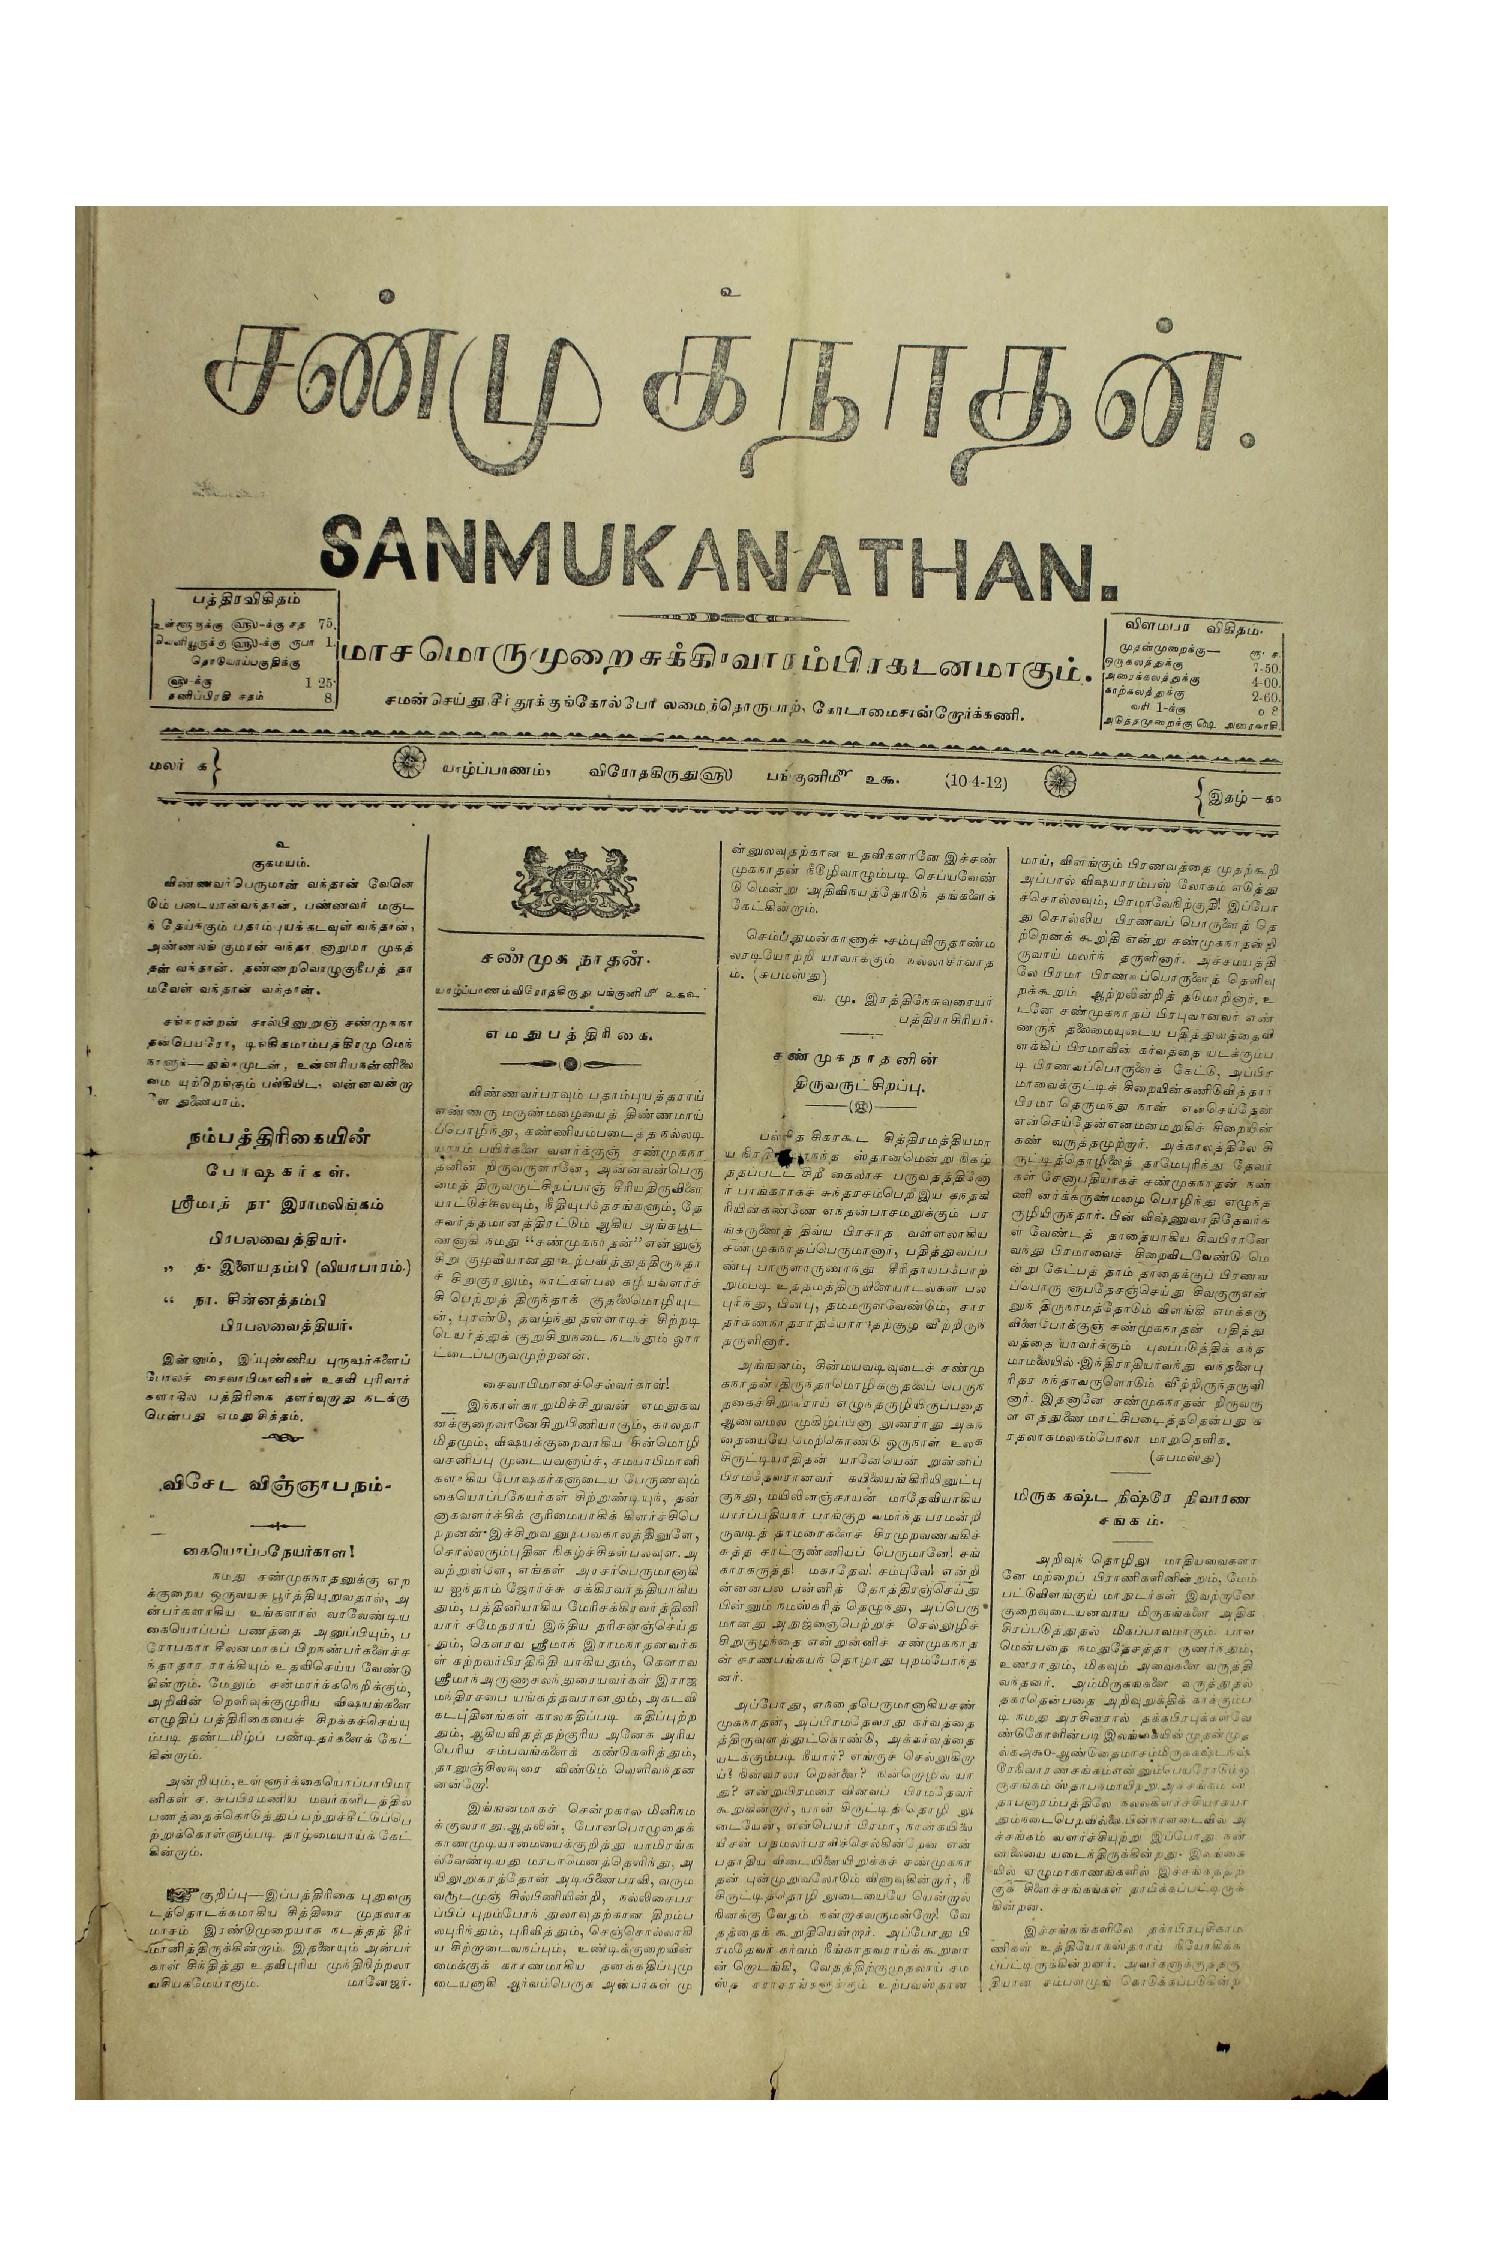 உ
சண்முகநாதன்.
SANMUKANATHAN.
பத்திரவிகிதம்
உள்ளூருக்கு ௵-க்கு சத 75.
வெளியூருக்கு ௵-க்கு ரூபா 1.
தொடுவாய்பகுதிக்கு
௵-க்கு 1 25
தனிப்பிரதி சதம் 8.
மாசமொருமுறைசுக்கிரவாரம்பிரகடனமாகும்.
சமன்செய்து சீர்தூக்குங்கோல்போ லமைந்தொருபாற், கோடாமைசான்றோர்க்கணி.
விளம்பர விகிதம்.
முதன்முறைக்கு— ரூ. ச.
ஒருகலத்துக்கு 7-50.
அரைக்கலத்துக்கு 4-00.
காற்கலத்துக்கு 2-60.
வரி 1-க்கு 0 8
அடுத்தமுறைக்கு அரைவாசி.
மலர் க
யாழ்ப்பாணம், விரோதகிருது௵ பங்குனிமீ உக. (10-4-12)
இதழ்—க௦
உ
குகமயம்.
விண்ணவர்பெருமான் வந்தான் வேலெ
டும் படையான்வந்தான், பண்ணவர் மகுட
ந் தேய்க்கும் பதாம்புயக்கடவுள் வந்தான்,
அண்ணலங் குமரன் வந்தா னாறுமா முகத்
தன் வந்தான். தண்ணறவொழுகுநீபத் தா
மவேள் வந்தான் வந்தான்.
சங்கரன்றன் சால்பினுறுஞ் சண்முகநா
தன்பெயரோ,
துணையாம்.
நம்பத்திரிகையின்
போஷகர்கள்.
ஸ்ரீமாந் நா இராமலிங்கம்
பிரபலவைத்தியர்.
„ த. இளையதம்பி (வியாபாரம்.)
“ நா. சின்னத்தம்பி
பிரபலவைத்தியர்.
இன்னும், இப்புண்ணிய புருஷர்களைப்
போலச் சைவாபிமானிகள் உதவி புரிவார்
களாகில் பத்திரிகை தளர்வுறாது நடக்கு
மென்பது எமதுசித்தம்.
விசேட விஞ்ஞாபநம்-
கையொப்பநேயர்காள்!
நமது சண்முகநாதனுக்கு ஏற
க்குறைய ஒருவயசு பூர்த்தியுறுவதால், அ
ன்பர்களாகிய உங்களால் வரவேண்டிய
கையொப்பப் பணத்தை அனுப்பியும், ப
ரோபகார சீலனமாகப் பிறநண்பர்களைச்ச
ந்தாதார ராக்கியும் உதவிசெய்ய வேண்டு
கின்றும். மேலும் சன்மார்க்கநெறிக்கும்,
அறிவின் றெளிவுக்குமுரிய விஷயங்களை
எழுதிப் பத்திரிகையைச் சிறக்கச்செய்யு
ம்படி தண்டமிழ்ப் பண்டிதர்களைக் கேட்
கின்றும்.
அன்றியும், உள்ளூர்க்கையொப்பாபிமா
னிகள் ச. சுப்பிரமணிய மவர்களிடத்தில்
பணத்தைக்கொடுத்துப் பற்றுச்சிட்டுப்பெ
ற்றுக்கொள்ளும்படி தாழ்மையாய்க் கேட்
கின்றும்.
குறிப்பு—இப்பத்திரிகை புதுவரு
டத்தொடக்கமாகிய சித்திரை முதலாக
மாசம் இரண்டுமுறையாக நடத்தத் தீர்
மானித்திருக்கின்றும். இதனையும் அன்பர்
காள் சிந்தித்து உதவிபுரிய முந்திநிற்றலா
வசியகமேயாரூம். மானேஜர்.
சண்முக நாதன்.
யாழ்ப்பாணம்விரோதகிருது பங்குனிமீ
எமதுபத்திரிகை.
விண்ணவர்பரவும் பதாம்புயத்தராய்
எண்ணரு மருண்மழையைத் திண்ணமாய்
ப்பொழிந்து, கண்ணியம்படைத்த நல்லடி
யாராம் பயிர்களை வளர்க்குஞ் சண்முகநா
தனின் றிருவருளானே, அன்னவன்பெரு
மைத் திருவருட்சிறப்பாஞ் சீரியதிருவிளை
யாட்டுக்களையும், நீதியுபதேசங்களும், தே
சவர்த்தமானத்திரட்டும் ஆகிய அங்கபூட்
ணனாகி நமது “சண்முகநாதன்” என்னுஞ்
சிறு குழவியானது உற்பவித்துத்திருந்தா
ச் சிறகுரலும், நாட்கள்பல கழியவளர்ச்
சி பெற்றுத் திருந்தாக் குதலைமொழியுட
ன், புரண்டு, தவழ்ந்து தள்ளாடிச் சிற்றடி
பெயர்த்துக் குறுகிறுநடை நடந்தும் ஓரா
ட்டைப்பருவமுற்றனன்.
சைவாபிமானச்செல்வர்காள்!
இந்நாள்காறுமிச்சிறுவன் எமதுகவ
னக்குறைவானேசிறுபிணியாகும், காலதா
மிதமும், விஷயக்குறைவாகிய சின்மொழி
வசனிப்பு முடையவனாய்ச், சமயாபிமானி
களாகிய போஷகர்களுடைய பேருணவும்
கையொப்பநேயர்கள் சிற்றுண்டியுந், தன்
னாகவளர்ச்சிக் குரிமையாகிக் கிளர்ச்சிபெ
ற்றனன். இச்சிறுவனுற்பவகாலத்தினுளே,
சொல்லரும்புதின நிகழ்ச்சிகள்பலவுள. அ
வற்றுள்ளே, எங்கள் அரசர்பெருமானாகி
ய ஐந்தாம் ஜோர்ச்சு சக்கிரவர்த்தியாகிய
தும், பத்தினியாகிய மேரிசக்கிரவர்த்தினி
யார் சமேதராய் இந்திய தரிசனஞ்செய்த
தும், கௌரவ ஸ்ரீமாந் இராமநாதனவர்க
ள் கற்றவர்பிரதிநிதி யாகியதும், கௌரவ
ஸ்ரீமாந்அருணாசலந்துரையவர்கள் இராஜ
மந்திரசபை யங்கத்தவரானதும், அகடவி
கடபுதினங்கள் காலகதிப்படி கதிப்புற்ற
தும், ஆகியவிதத்தற்குரிய அனேக அரிய
பெரிய சம்பவங்களைக் கண்டுகளித்தும்,
தானுஞ்சிலவுரை விண்டும் வெளிவந்தன
னன்றே!
இங்ஙனமாகச் சென்றகால மினிநம
க்குவராது. ஆதலின், போனபொழுதைக்
காணமுடியாமையைக்குறித்து யாமிரங்க
ல்வேண்டியது மரபாமெனத்தெளிந்து, அ
யிலுறுகரத்தோன் அடியிணைபரவி, வரும
வருடமுஞ் சில்பிணியின்றி, நல்லிசைபர
ப்பிப் புறம்போந் துலாவுதற்கான திறம்ப
லபுரிந்தும், புரிவித்தும், செஞ்சொல்லாகி
ய சிற்றாடைவநப்பும், உண்டிக்குறைவின்
மைக்குக் காரணமாகிய தனக்கதிப்புமு
டையனாகி ஆர்வம்பெருக அன்பர்கள் மு
ன்னுலவுதற்கான உதவிகளானே இச்சண்
முகநாதன் நீடூழிவாழும்படி செய்யவேண்
டு மென்று அதிவிநயத்தோடுந் தங்களைக்
கேட்கின்றும்.
வ. மு. இரத்திநேசுவரையர்
பத்திராசிரியர்.
சண்முகநாதனின்
திருவருட்சிறப்பு.
தப்பட்ட சிறீ கைலாச பருவதத்தினோ
ர் பாங்கராகச் சுந்தரசம்பெறீஇய கந்தகி
ரியின்கண்ணே எந்தன்பாசமறுக்கும் பர
ங்கருணைத் திவ்ய பிரசாத வள்ளலாகிய
சண்முகநாதப்பெருமானார், பதித்துவப்ப
ண்பு
றும்படி உத்தமத்திருவிளையாடல்கள் பல
புரிந்து, பின்பு, தம்மருள்வேண்டும், சார
தர்கணநாதராதியோர் தற்சூழ வீற்றிருந்
தருளினார்.
அங்ஙனம், சின்மயவடிவுடைச் சண்மு
கநாதன் திருந்தாமொழிக்குதலைப் பெருந்
தகைச்சிறுவராய் எழுந்தருழியிருப்பதை
ஆணவமல முகிழ்ப்பினா லுணராது அகந்
தையையே மேற்கொண்டு ஒருநாள் உலக
சிருட்டியாதிதன் யானேயென் றுன்னிப்
பிரமதேவரானவர் கயிலையங்கிரியினுட்பு
குந்து, மயிலினஞ்சாயன் மாதேவியாகிய
யார்ப்பதியார் பாங்குற வமர்ந்த பரமன்றி
ருவடித் தாமரைகளைச் சிரமுறவணங்கிச்
சுத்த சாட்குண்ணியப் பெருமானே! சங்
காரகருத்த! மகாதேவ! சம்புவே! என்றி
ன்னபல பன்னித் தோத்திரஞ்செய்து
பின்னும் நமஸ்கரித் தெழுந்து, அப்பெரு
மானது அநுஜ்ஞைபெற்றுச் செல்லுழிச்
சிறுகுழந்தை என்றுன்னிச் சண்முகநாத
ன் சரணபங்கயந் தொழாது புறம்போந்த
னர்.
அப்போது, எந்தைபெருமானாகியசண்
முகநாதன், அப்பிரமதேவரது கர்வத்தை
த்திருவுளத்துட்கொண்டு, அக்கர்வத்தை
யடக்கும்படி நீயார்? எங்ஙுச் செல்லுகிரு
ய்! நின்வரலா றென்னை? நின்றொழில் யா
து? என்றுபிரமரை வினவப் பிரமதேவர்
கூறுகின்றார், யான் சிருட்டித் தொழி லு
டையேன், என்பெயர் பிரமா, நான்கயிலை
யீசன் பதமலர்பரவிச்செல்கின்றேன் என்
பதாதிய விடையினையிறுக்கச் சண்முகநா
தன் புன்முறுவலோடும் வினவுகின்றார், நீ
சிருட்டித்தொழி லுடையையே யென்றால்
நினக்கு வேதம் நன்றாகவருமன்றே! வே
தத்தைக் கூறுதியென்றார். அப்போது பி
ரமதேவர் கர்வம் நீங்காதவராய்க் கூறுவா
ன் றொடங்கி, வேதத்திற்குமுதலாய் சம
ஸ்த சராசரங்களுக்கும் உற்பவஸ்தான
மாய், விளங்கும் பிரணவத்தை முதற்கூறி
அப்பால் விஷயாரம்பஸ் லோகம் எடுத்து
ச்சொல்லவும், பிரமாவேநிற்குதி! இப்போ
து சொல்லிய பிரணவப் பொருளைத் தெ
ற்றெனக் கூறிதி என்று சண்முகநாதன்றி
ருவாய் மலர்ந் தருளினார். அச்சமயத்தி
லே பிரமா பிரணவப்பொருளைத் தெளிவு
றக்கூறும் ஆற்றலின்றித் தடுமாறினார். உ
டனே சண்முகநாதப் பிரபுவானவர் எண்
ணருந் தலைமையுடைய பதித்துவத்தைவி
ளக்கிப் பிரமாவின் கர்வத்தை யடக்கும்ப
டி பிரணவப்பொருளைக் கேட்டு, அப்பிர
மாவைக்குட்டிச் சிறையின்கணிடுவித்தார்
பிரமா தெருமந்து நான் என்செய்தேன்
என்செய்தேன்எனமனமறுகிச் சிறையின்
கண் வருத்தமுற்றார். அக்காலத்திலே சி
ருட்டித்தொழிலைத் தாமேபுரிந்து தேவர்
கள் சேனாபதியாகச் சண்முகநாதன் நண்
ணி னர்க்கருண்மழை பொழிந்து எழுந்த
ருழியிருந்தார். பின் விஷ்ணுவாதிதேவர்க
ள் வேண்டத் தாதையாகிய சிவபிரானே
வந்து பிரமாவைச் சிறைவிடவேண்டு மெ
ன்று கேட்பத் தாம் தாதைக்குப் பிரணவ
ப்பொரு ளுபதேசஞ்செய்து சிவகுருஎன்
னுந் திருநாமத்தோடும் விளங்கி எமக்கரு
ள்
வத்தை யாவர்க்கும் புலப்படுத்திக் கந்த
மாமலையில் இந்திராதியர்வந்து வந்தனைபு
ரிதர நந்தாவருளொடும் வீற்றிருந்தருளி
னார். இதனானே சண்முகநாதன் றிருவரு
ள் எத்துணை மாட்சிபடைத்ததென்பது க
ரதலாமலகம்போலா மாறுதெளிக.
(சுபமஸ்து)
மிருக கஷ்ட நிஷ்டூர நிவாரண
சங்கம்.
அறிவுந் தொழிலு மாதியவைகளா
னே மற்றைப் பிராணிகளினின்றும், மேம்
பட்டுவிளங்குப் மாநுடர்கள் இவற்றானே
குறைவுடையனவாய மிருகங்களை அதிக
சிரப்படுத்துதல் மிகப்பாவமாகும். பாவ
மென்பதை நமதுதேசத்தா ருணர்ந்தும்,
உணராதும், மிகவும் அவைகளை வருத்தி
வந்தனர். அம்மிருகங்களை வருத்துதல்
தகாதென்பதை அறிவுறுத்திக் காக்கும்ப
டி நமது அரசினரால் தக்கபிரபுக்கள்வே
ண்டுகோளின்படி இலங்கையின்முதன்முத
தாபனாரம்பத்திலே நல்லகிளர்ச்சியாகயா
தும்நடைபெறவில்லை. பின்நாளடைவில் அ
ச்சங்கம் வளர்ச்சியுற்று இப்போது நன்
னிலையை யடைந்திருக்கின்றது. இலங்கை
யில் ஏழுமாகாணங்களில் இச்சங்கத்தற்
குக் கிளைச்சங்கங்கள் தாபிக்கப்பட்டிருக்
கின்றன.
இச்சங்கங்களிலே தக்கபிரபுசிகாம
ணிகள் உத்தியோகஸ்தராய் நியோகிக்க
ப்பட்டிருக்கின்றனர். அவர்களுக்குத்தகு
தியான சம்பளமுங் கொடுக்கப்படுகின்ற